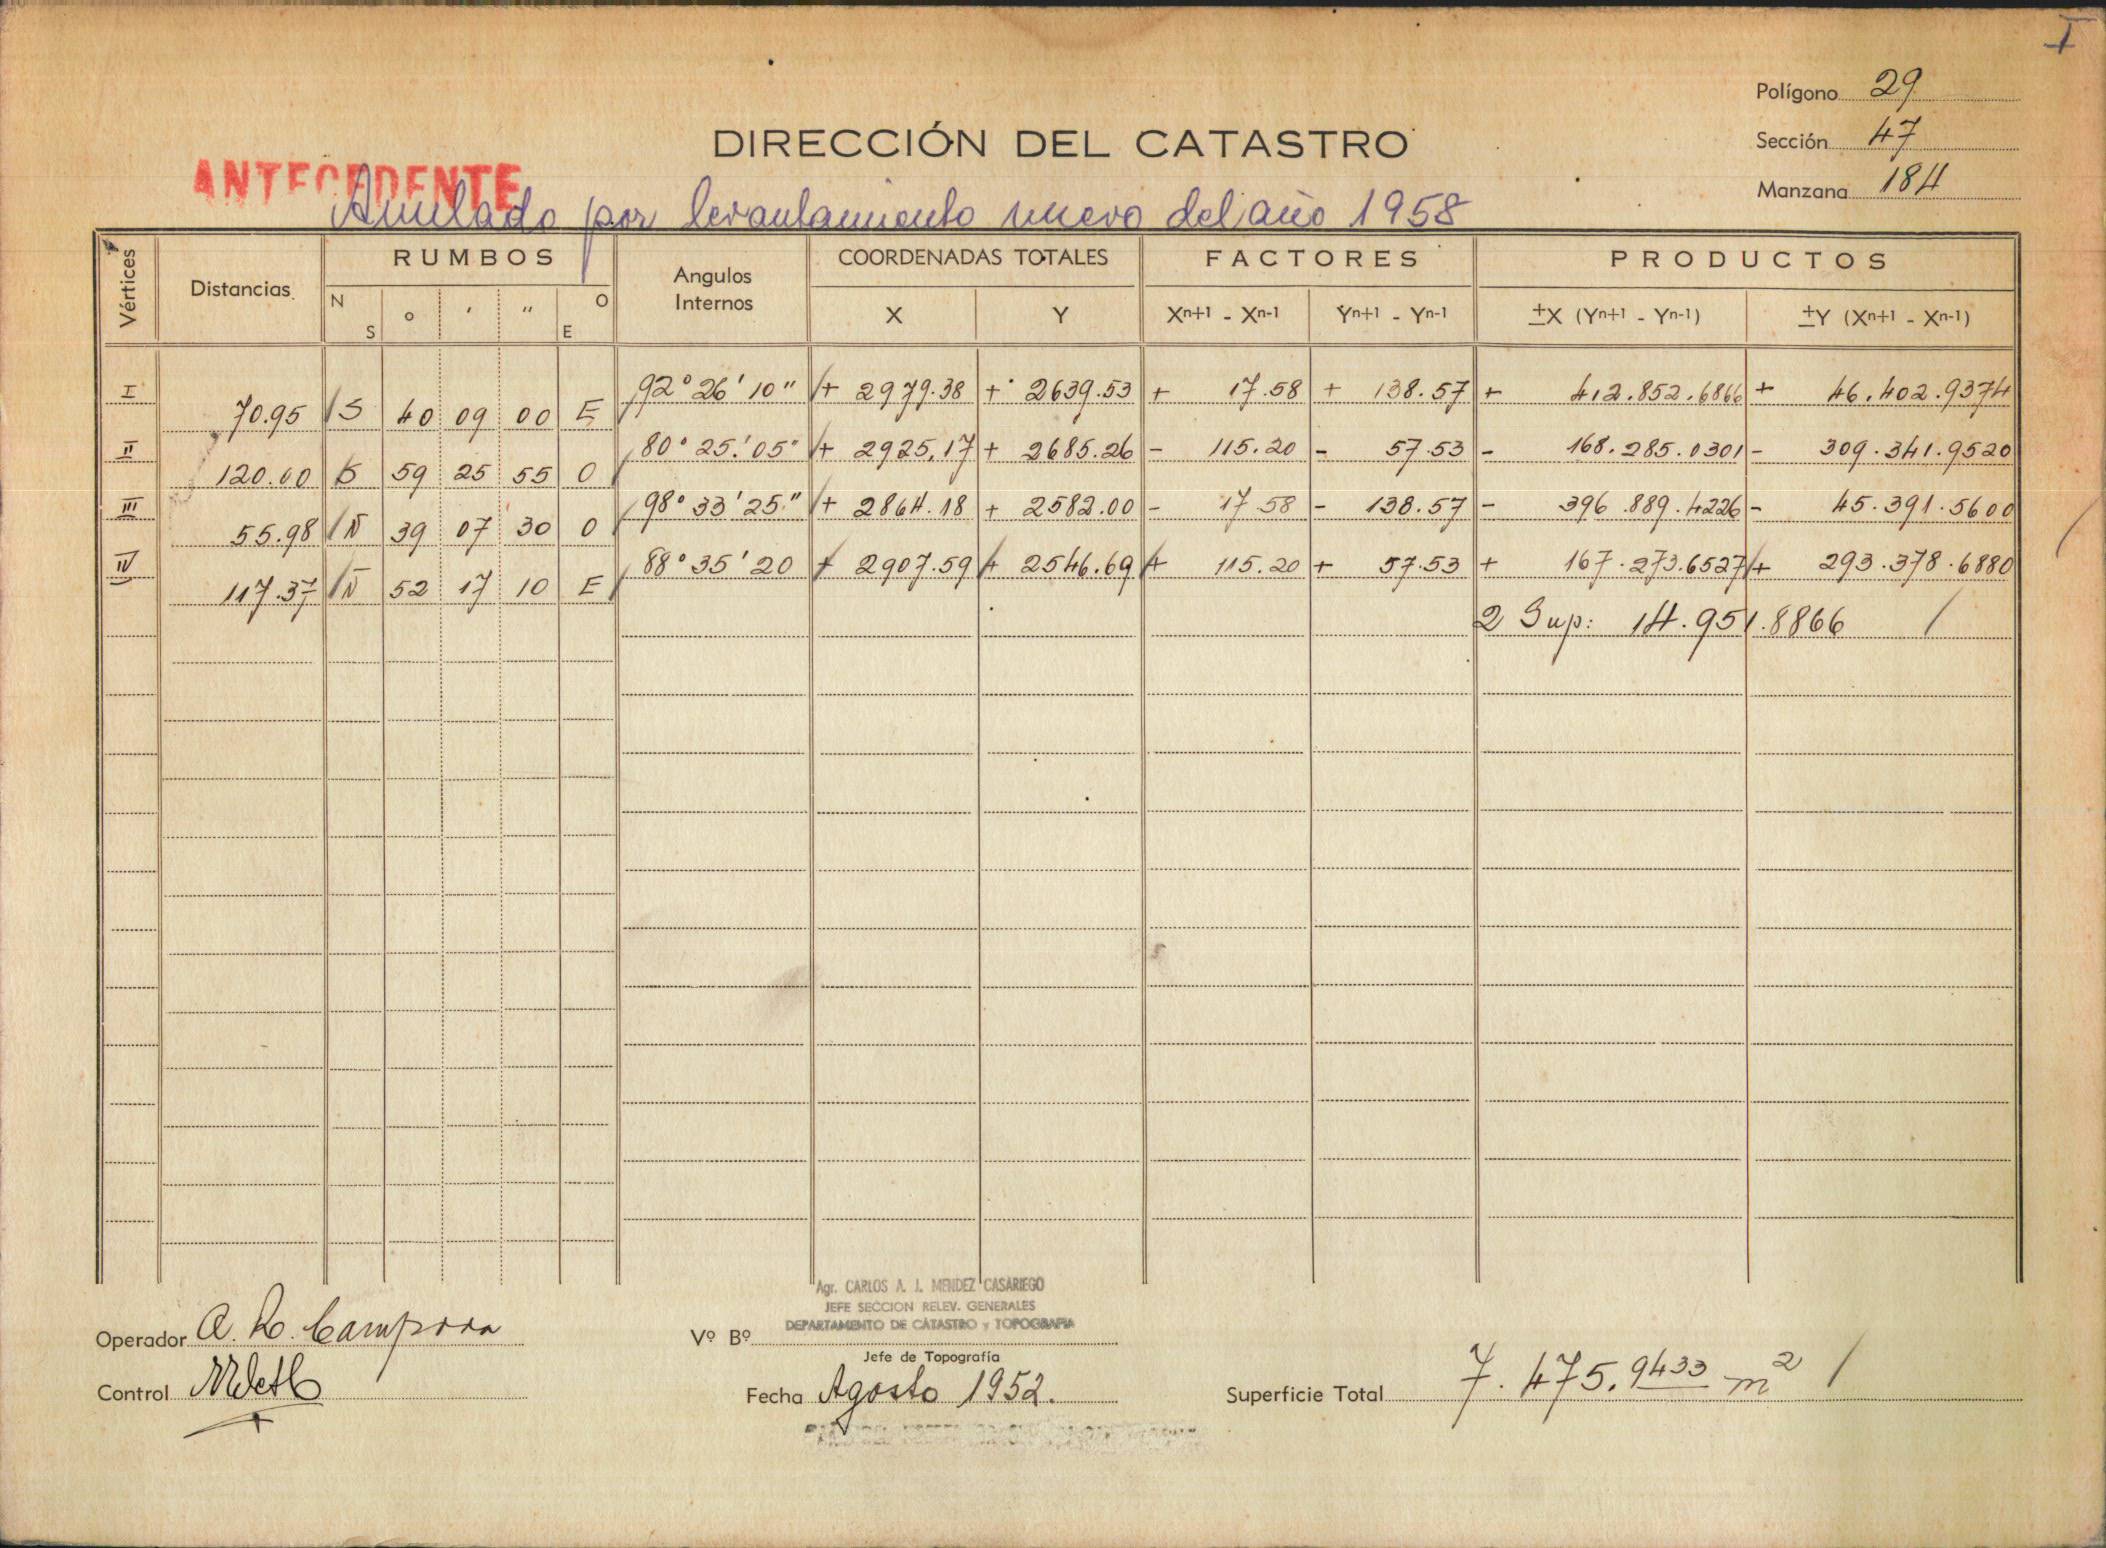 I
Polígono 29
Sección 47
Manzana 184
DIRECCIÓN DEL CATASTRO
ANTECEDENTE
Anulado por levantamiento nuevo del año 1958
Vértices Distancias RUMBOS Angulos Internos COORDENADAS TOTALES FACTORES PRODUCTOS
N S o ' " O E X Y Xn+1 - Xn-1 Yn+1 - Yn-1 ±X (Yn+1 - Yn-1) ±Y (Xn+1 - Xn-1)
I 92° 26' 10" + 2979.38 + 2639.53 + 17.58 + 138.57 + 412.852.6866 + 46.402.9374
70.95 S 40 09 00 E
II 80° 25' 05" + 2925.17 + 2685.26 - 115.20 - 57.53 - 168.285.0301 - 309.341.9520
120.00 S 59 25 55 O
III 98° 33' 25" + 2864.18 + 2582.00 - 17.58 - 138.57 - 396.889.4226 - 45.391.5600
55.98 N 39 07 30 O
IV 88° 35' 20 + 2907.59 + 2546.69 + 115.20 + 57.53 + 167.273.6527 + 293.378.6880
117.37 N 52 17 10 E
2 Sup: 14.951.8866
Agr. CARLOS A. J. MENDEZ CASARIEGO
JEFE SECCION RELEV. GENERALES
DEPARTAMENTO DE CATASTRO y TOPOGRAFIA
Operador A. R. Campora
Vº Bº
Jefe de Topografía
Control
Fecha Agosto 1952.
Superficie Total 7.475.9433 m2